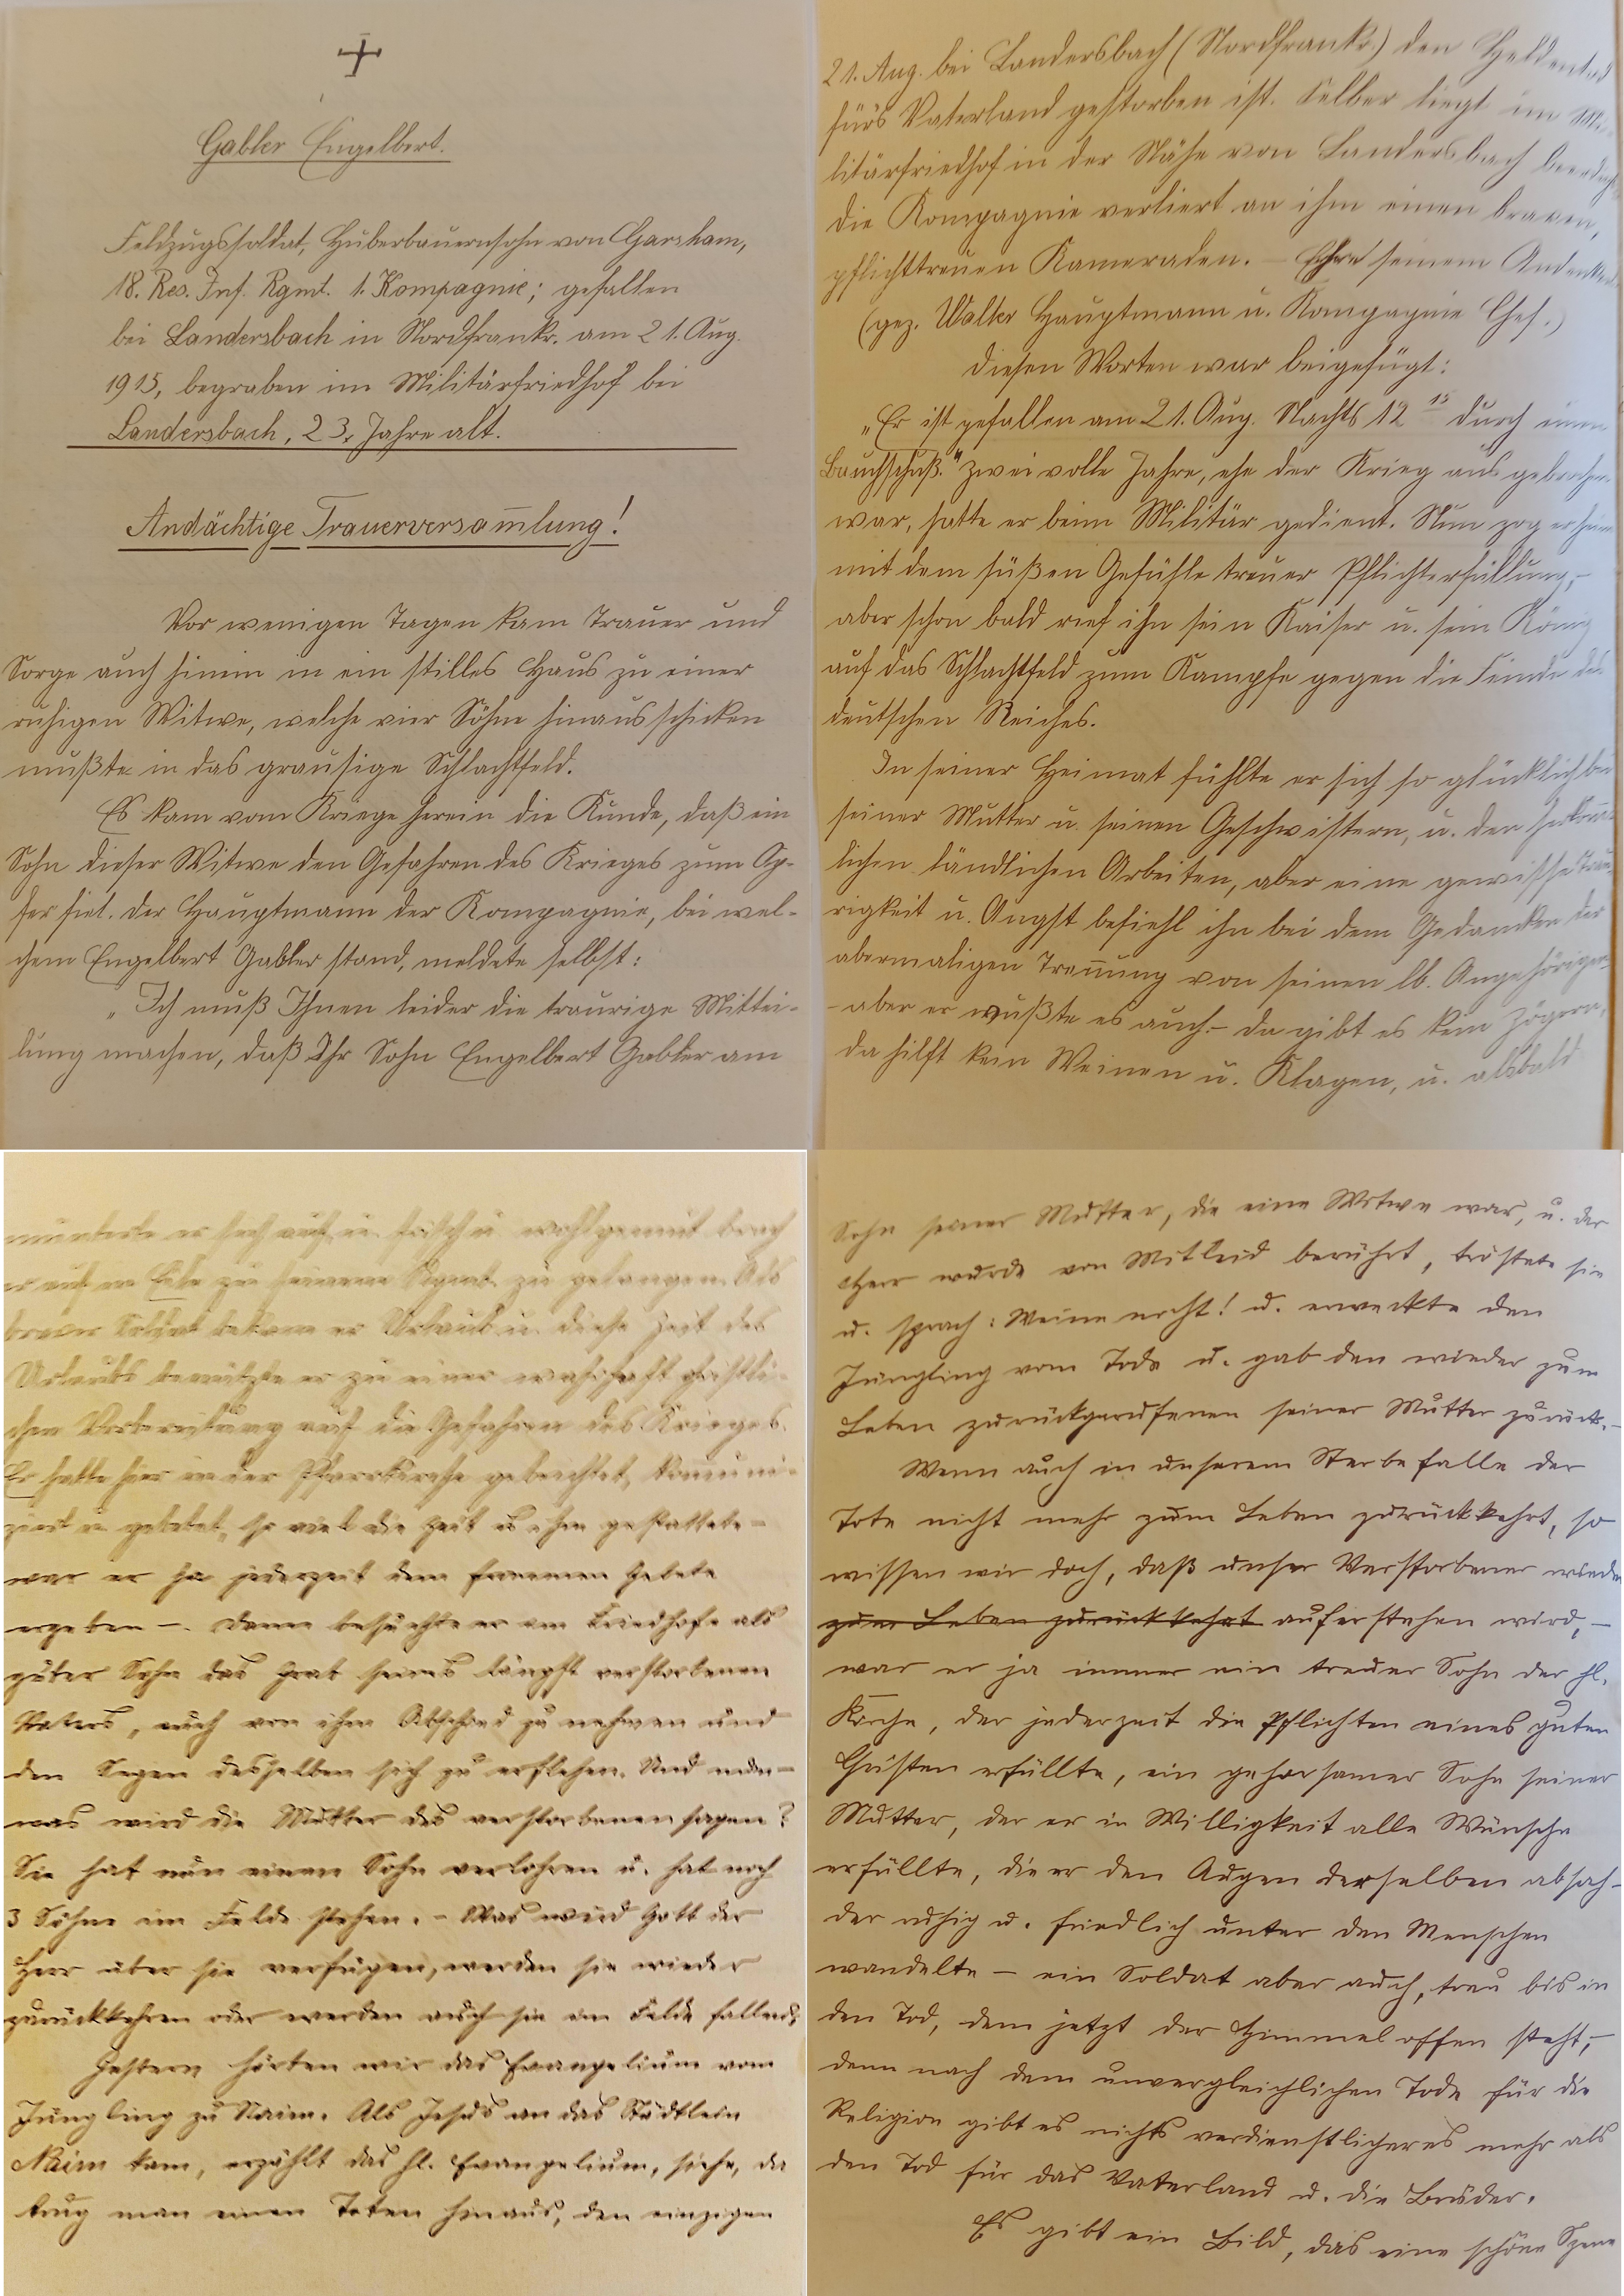 Gabler Engelbert.
Feldzugssoldat, Huberbauernsohn von Garsham,
18. Res. Inf. Rgmt. 1. Kompagnie; gefallen
bei Landersbach in Nordfrankr. am 21. Aug.
1915, begraben im Militärfriedhof bei
Landersbach, 23. Jahre alt.
Andächtige Trauerversam̄lung!
Vor wenigen Tagen kam Trauer und
Sorge auch hinein in ein stilles Haus zu einer
ruhigen Witwe, welche vier Söhne hinausschicken
mußte in das grausige Schlachtfeld.
Es kam vom Kriege herein die Kunde, daß ein
Sohn dieser Witwe den Gefahren des Krieges zum Op-
fer fiel. Der Hauptmann der Kompagnie, bei wel-
chem Engelbert Gabler stand, meldete selbst:
„Ich muß Ihnen leider die traurige Mittei-
lung machen, daß Ihr Sohn Engelbert Gabler am
21. Aug. bei Landersbach (Nordfrankr.) den Heldentod
fürs Vaterland gestorben ist. Selber liegt im Mi-
litärfriedhof in der Nähe von Landersbach beerdigt
die Kompagnie verliert an ihm einen braven,
pflichttreuen Kameraden. – Ehre seinem Andenken
(gez. Walter Hauptmann u. Kompagnie Chef.)
Diesen Worten war beigefügt:
„Er ist gefallen am 21. Aug. Nachts 12 15 durch einen
Bauchschuß." Zwei volle Jahre, ehe der Krieg ausgebrochen
war, hatte er beim Militär gedient. Nun zog er heim
mit dem süßen Gefühle treuer Pflichterfüllung, –
aber schon bald rief ihn sein Kaiser u. sein König
auf das Schlachtfeld zum Kampfe gegen die Feinde des
deutschen Reiches.
In seiner Heimat fühlte er sich so glücklich bei
seiner Mutter u. seinen Geschwistern, u. den
lichen ländlichen Arbeiten, aber eine gewisse Trau-
rigkeit u. Angst befiehl ihn bei dem Gedancken der
abermaligen Tren̄ung von seinen lb. Angehörigen
– aber er wußte es auch. – da gibt es kein Zögern,
da hilft kein Weinen u. Klagen, u. alsbald
munterte er sich auf u. frisch u. wohlgemut brach
er auf um Eile zu seinem Regmt. zu gelangen. Als
braver Soldat bekam er Urlaub u. diese Zeit des
Urlaubs benützte er zu einer wahrhaft christli-
chen Vorbereitung auf die Gefahren des Krieges.
Er hatte hier in der Pfarrkirche gebeichtet, kom̄uni-
ziert u. gebetet, so viel die Zeit es ihm gestattete –
war er ja jederzeit dem frommen Gebete
ergeben –. Dann besuchte er am Friedhofe als
guter Sohn das Grab seines längst verstorbenen
Vaters, auch von ihm Abschied zu nehmen und
den Segen desselben sich zu erflehen. Und nun –
was wird die Mutter des verstorbenen sagen?
Sie hat nun einen Sohn verlohren u. hat noch
3 Söhne im Felde stehen. – Was wird Gott der
Herr über sie verfügen, werden sie wieder
zurückkehren oder werden auch sie im Felde fallen?
Gestern hörten wir das Evangelium vom
Jüngling zu Naim. Als Jesus an das Städtlein
Naim kam, erzählt das hl. Evangelium, siehe, da
trug man einen Toten hinaus, den einzigen
Sohn seiner Mutter, die eine Witwe war, u. der
Herr wurde von Mitleid berührt, tröstete sie
u. sprach: Weine nicht! u. erweckte den
Jüngling vom Tode u. gab den wieder zum
Leben zurückgerufenen seiner Mutter zurück. –
Wenn auch in unserem Sterbefalle der
Tote nicht mehr zum Leben zurückkehrt, so
wissen wir doch, daß unser Verstorbener wieder
zum Leben zurückkehrt auferstehen wird, –
war er ja immer ein treuer Sohn der hl.
Kirche, der jederzeit die Pflichten eines guten
Christen erfüllte, ein gehorsamer Sohn seiner
Mutter, der er in Willigkeit alle Wünsche
erfüllte, die er den Augen derselben absah –
der ruhig u. friedlich unter den Menschen
wandelte – ein Soldat aber auch, treu bis in
den Tod, dem jetzt der Himmel offen steht, –
denn nach dem unvergleichlichen Tode für die
Religion gibt es nichts verdienstlicheres mehr als
den Tod für das Vaterland u. die Brüder.
Es gibt ein Bild, das eine schöne Szene